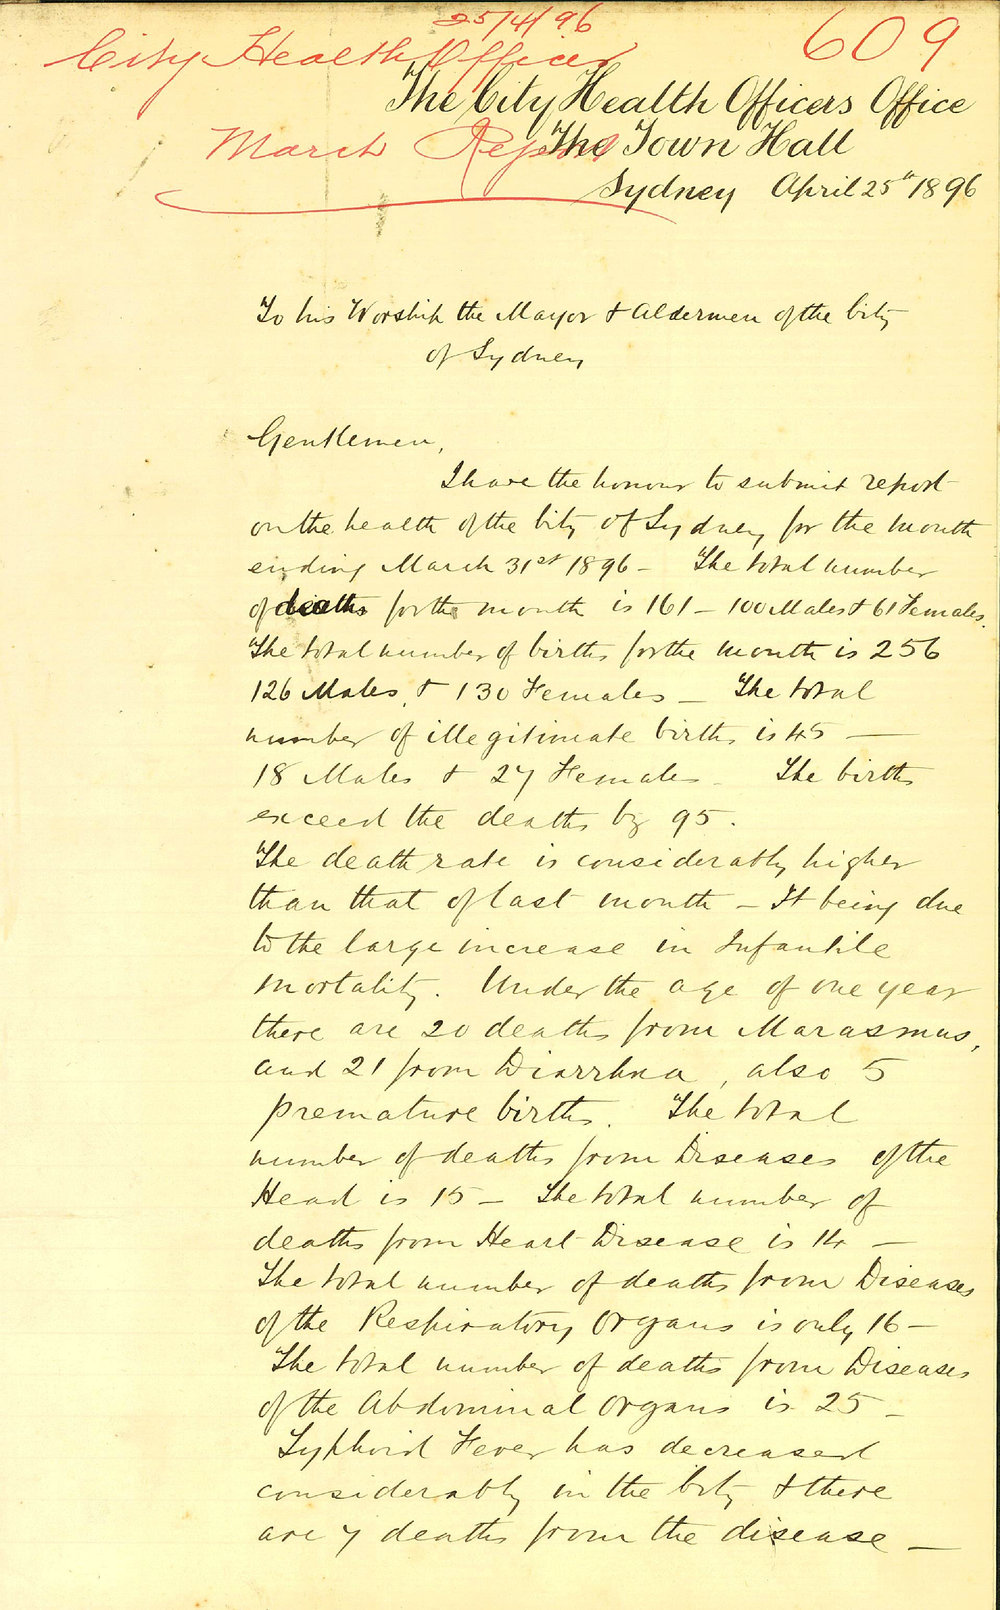 25/4/96
609
City Health Officer
The City Health Officers Office
March Report
The Town Hall
Sydney April 25th 1896
To his Worship the Mayor & Aldermen of the City
of Sydney
Gentlemen,
I have the honour to submit report
on the health of the City of Sydney for the month
ending March 31st 1896 - The total number
of deaths for the month is 161 - 100 Males & 61 Females.
The total number of births for the month is 256
126 Males, & 130 Females - The total
number of illegitimate births is 45 -
18 Males & 27 Females - The births
exceed the deaths by 95.
The death rate is considerably higher
than that of last month - It being due
to the large increase in Infantile
mortality. Under the age of one year
there are 20 deaths from Marasmus,
and 21 from Diarrhœa, also 5
premature births. The total
number of deaths from Diseases of the
Head is 15 - The total number of
deaths from Heart Disease is 14 -
The total number of deaths from Diseases
of the Respiratory Organs is only 16 -
The total number of deaths from Diseases
of the Abdominal Organs is 25 -
Typhoid Fever has decreased
considerably in the City & there
are 7 deaths from the disease -